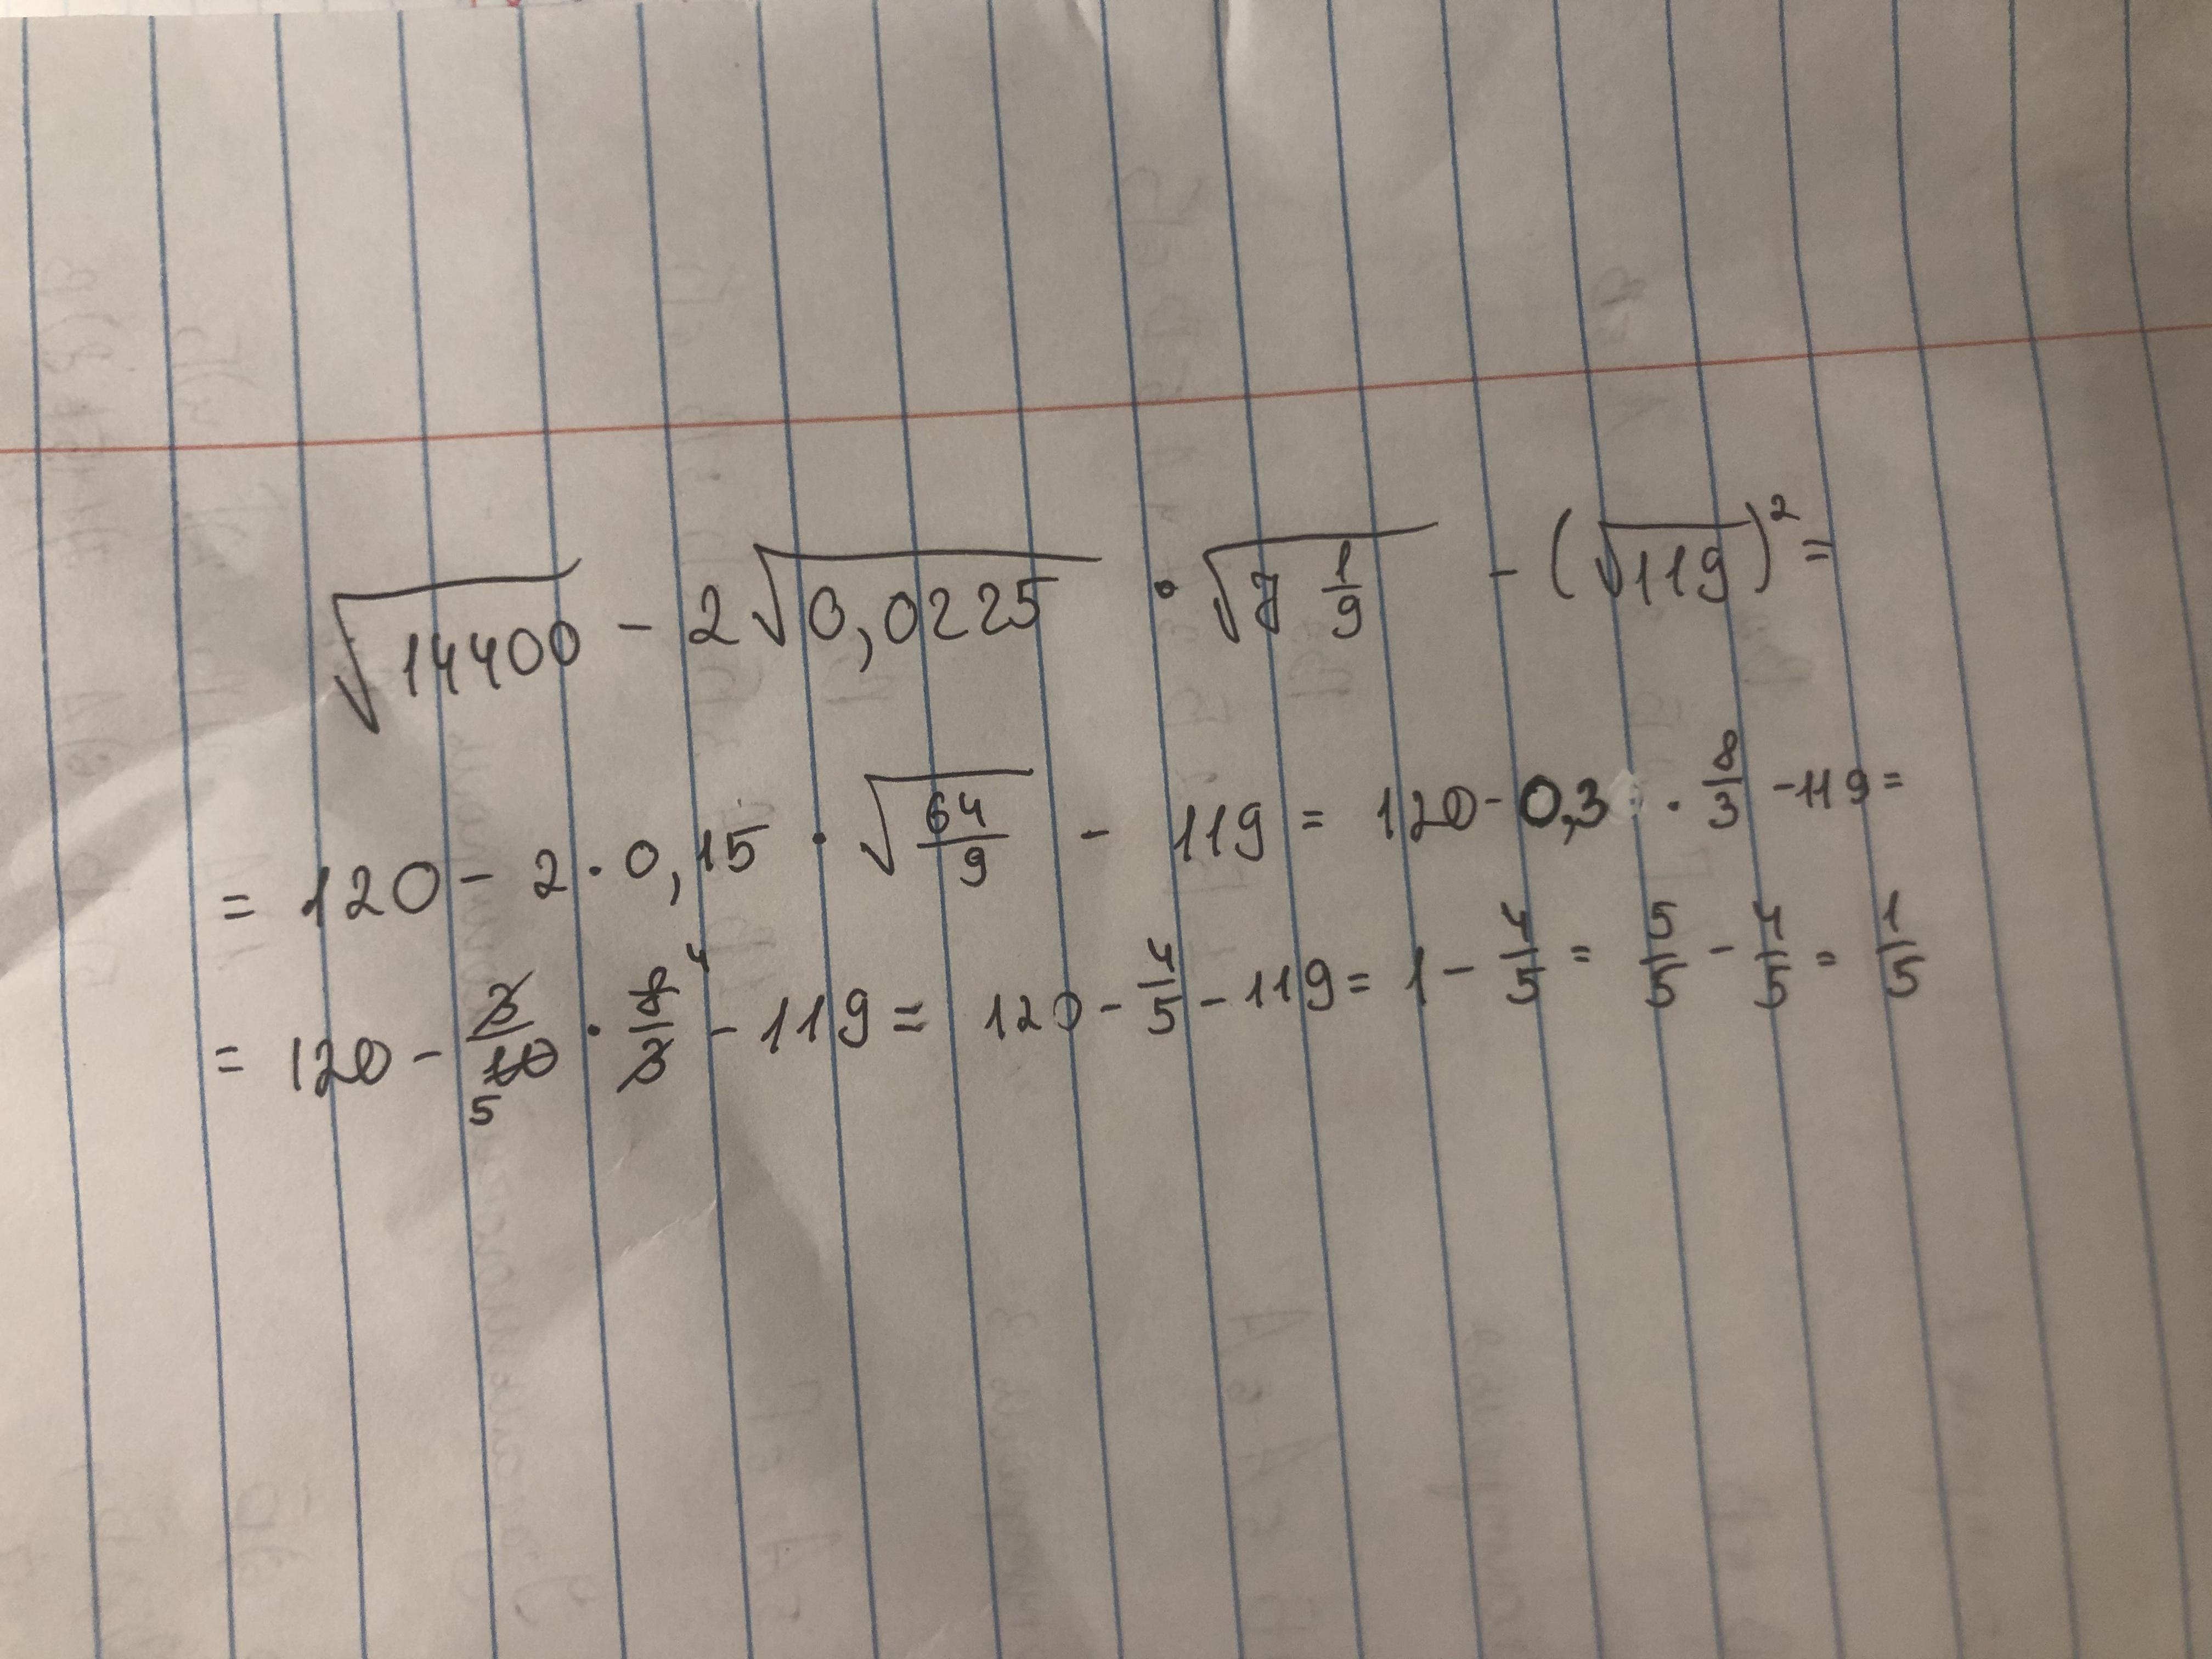 √14400 − 2√0,0225 · √7 1/9 − (√119)² =
= 120 − 2 · 0,15 · √64/9 − 119 = 120 − 0,3 · 8/3 − 119 =
= 120 − 3/10 5 · 8/3 4 − 119 = 120 − 4/5 − 119 = 1 − 4/5 = 5/5 − 4/5 = 1/5